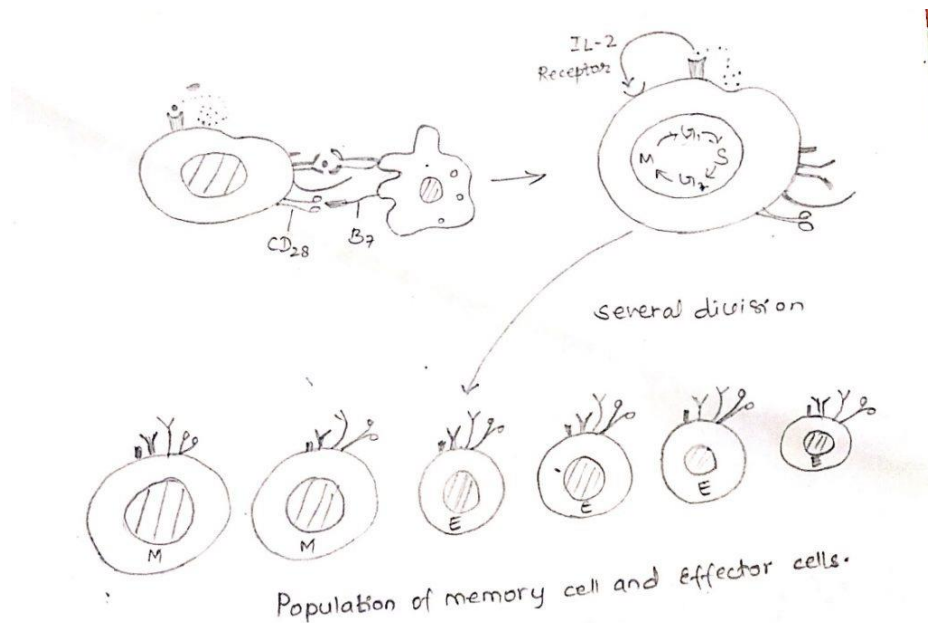 IL-2
Receptor
G1
M
S
G2
CD28
B7
several division
M
M
E
E
E
E
Population of memory cell and effector cells.